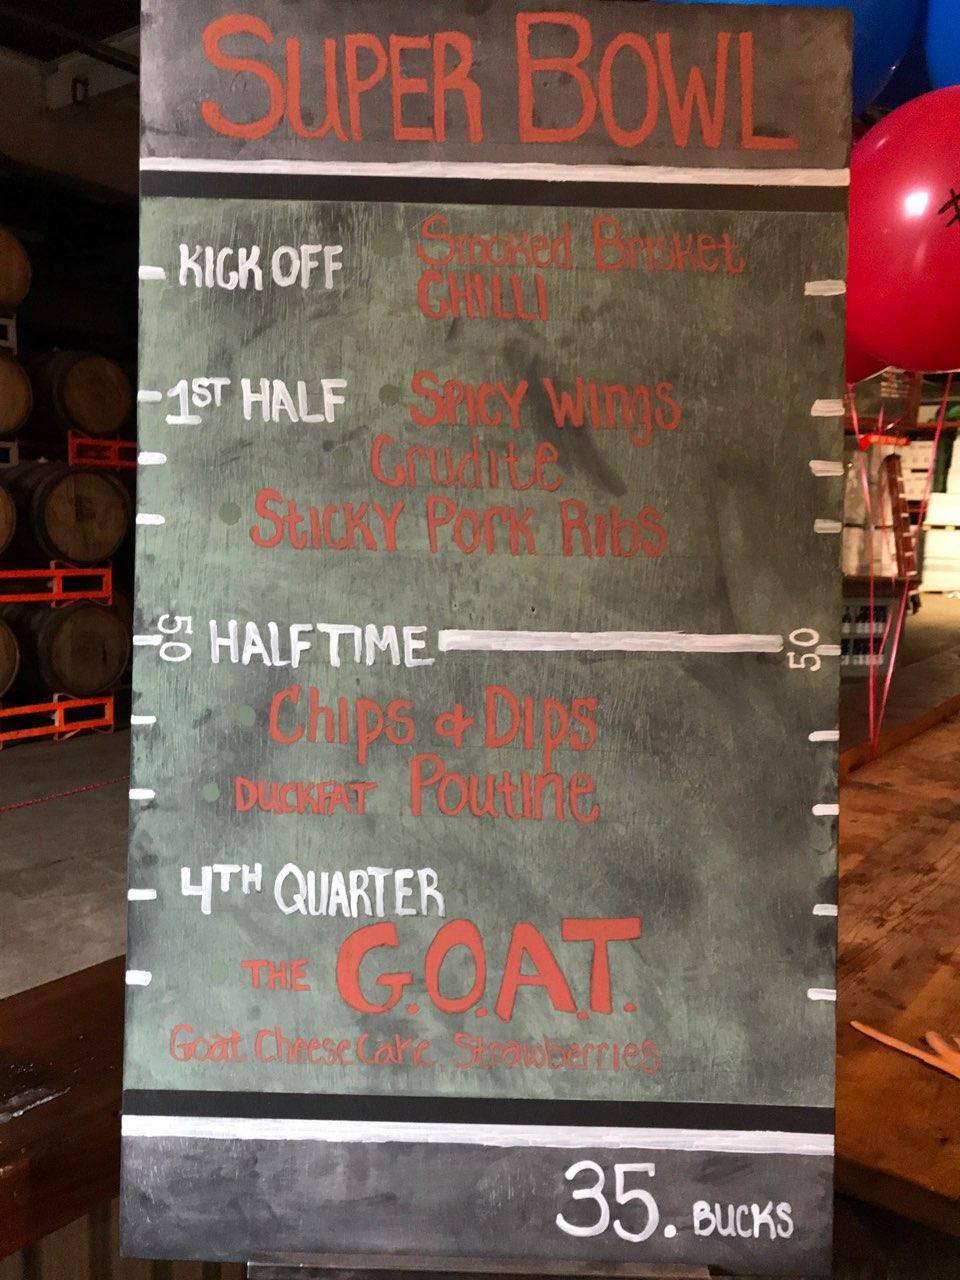 SUPER BOWL
KICK OFF Smoked Brisket
CHILLI
1ST HALF Spicy Wings
Crudite
Sticky Pork Ribs
50 HALFTIME 50
Chips & Dips
DUCKFAT Poutine
4TH QUARTER
THE G.O.A.T.
Goat Cheese Cake, Strawberries
35. BUCKS